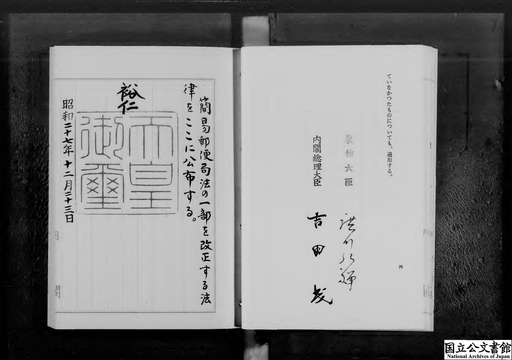 ていなかつたものについても、適用する。
大臣
内閣総理大臣
吉田茂
四
簡易郵便局法の一部を改正する法
律をここに公布する。
裕仁
天皇
御璽
昭和二十七年十二月二十三日
国立公文書館
National Archives of Japan